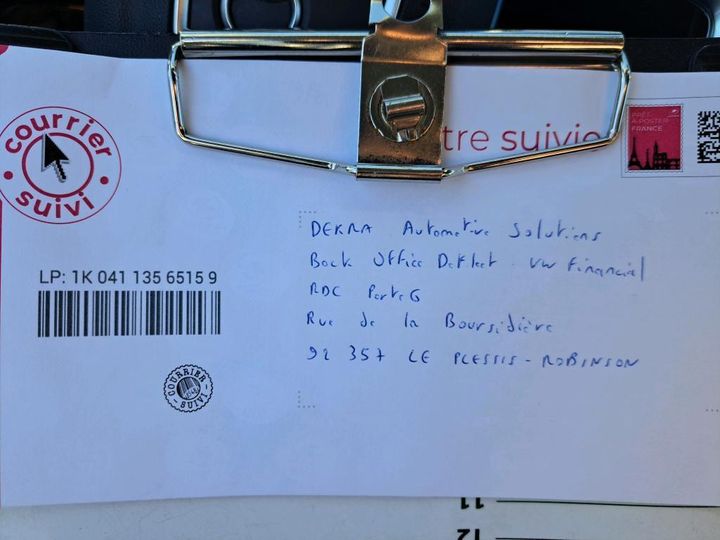 courrier
suivi
tre suivie
PRÊT
À POSTER
FRANCE
DEKRA Automotive Solutions
Back Office DeFleet - VW Financial
RDC Porte G
Rue de la Boursidière
92 357 LE PLESSIS - ROBINSON
LP: 1K 041 135 6515 9
COURRIER
SUIVI
11
12